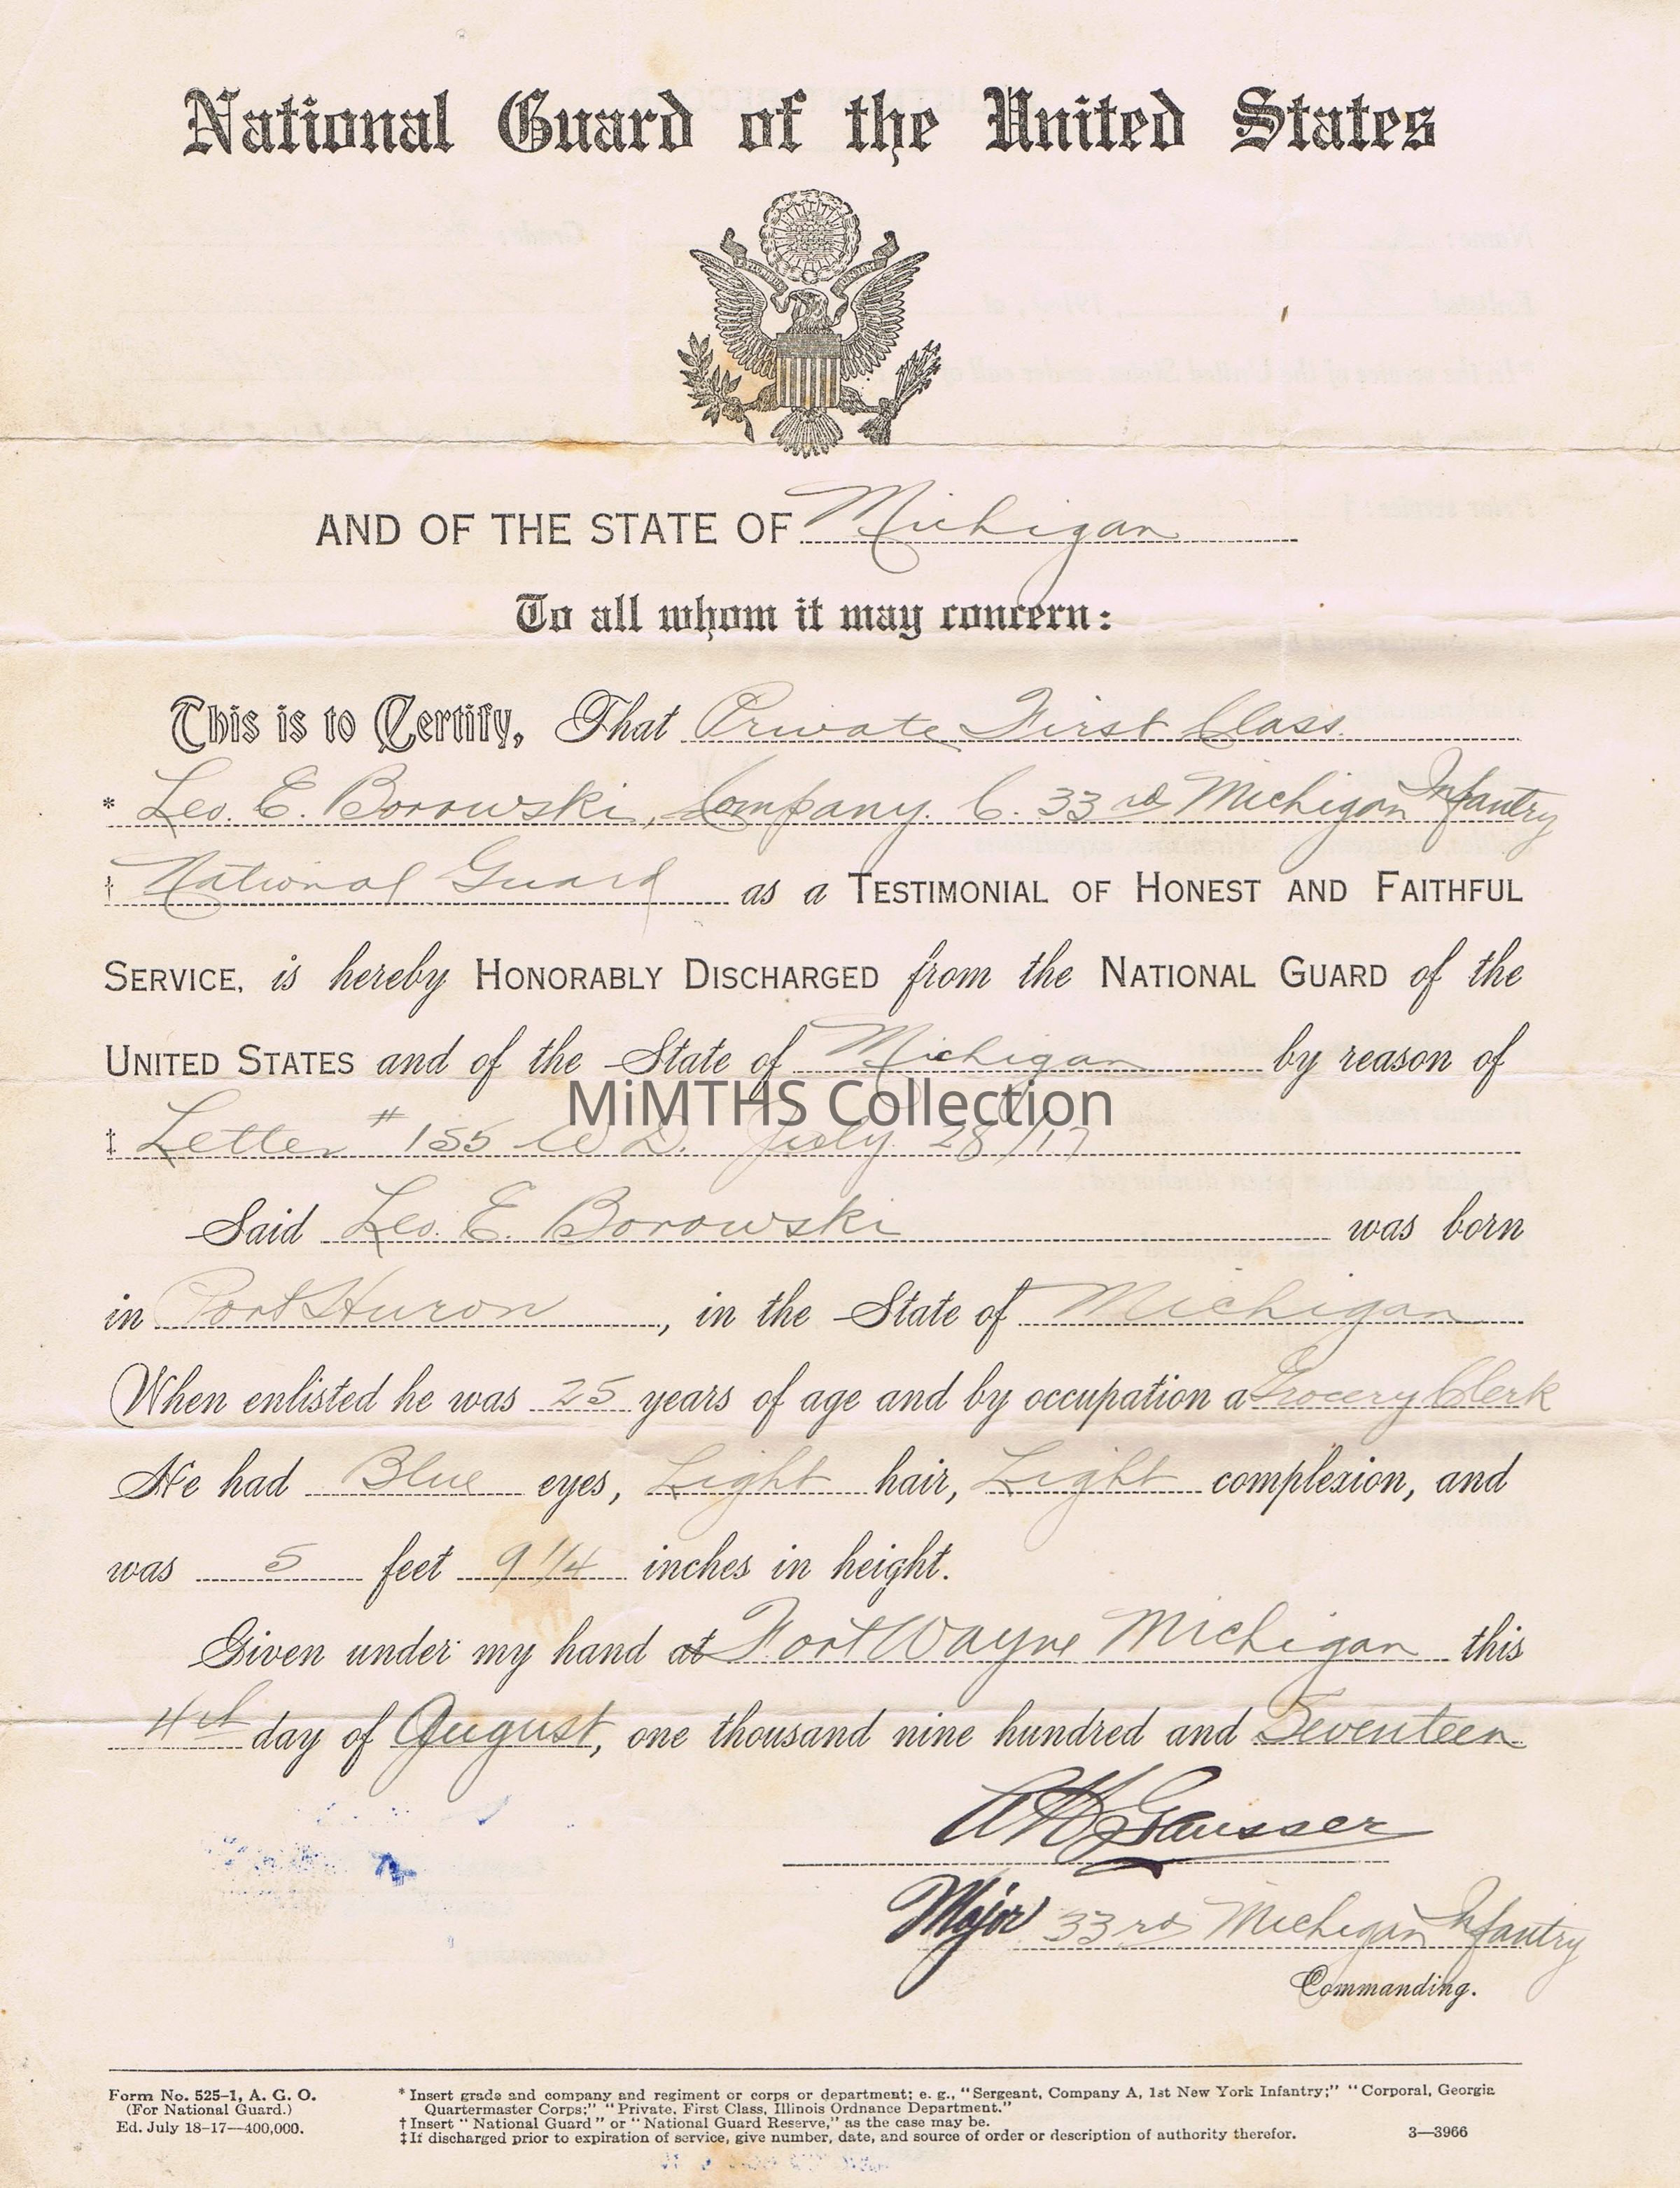 National Guard of the United States
AND OF THE STATE OF Michigan
To all whom it may concern:
This is to Certify, That Private First Class
* Leo. E. Borowski, Company. C. 33rd Michigan Infantry
† National Guard as a TESTIMONIAL OF HONEST AND FAITHFUL
SERVICE, is hereby HONORABLY DISCHARGED from the NATIONAL GUARD of the
UNITED STATES and of the State of Michigan by reason of
MiMTHS Collection
‡ Letter #155 W D. July 28/17
Said Leo. E. Borowski was born
in Port Huron, in the State of Michigan
When enlisted he was 25 years of age and by occupation a Grocery Clerk
He had Blue eyes, Light hair, Light complexion, and
was 5 feet 9 1/4 inches in height.
Given under my hand at Fort Wayne Michigan this
4th day of August, one thousand nine hundred and Seventeen
Major 33rd Michigan Infantry
Commanding.
Form No. 525-1, A. G. O.
(For National Guard.)
Ed. July 18-17—400,000.
* Insert grade and company and regiment or corps or department; e. g., "Sergeant, Company A, 1st New York Infantry;" "Corporal, Georgia
Quartermaster Corps;" "Private, First Class, Illinois Ordnance Department."
† Insert "National Guard" or "National Guard Reserve," as the case may be.
‡ If discharged prior to expiration of service, give number, date, and source of order or description of authority therefor.
3—3966